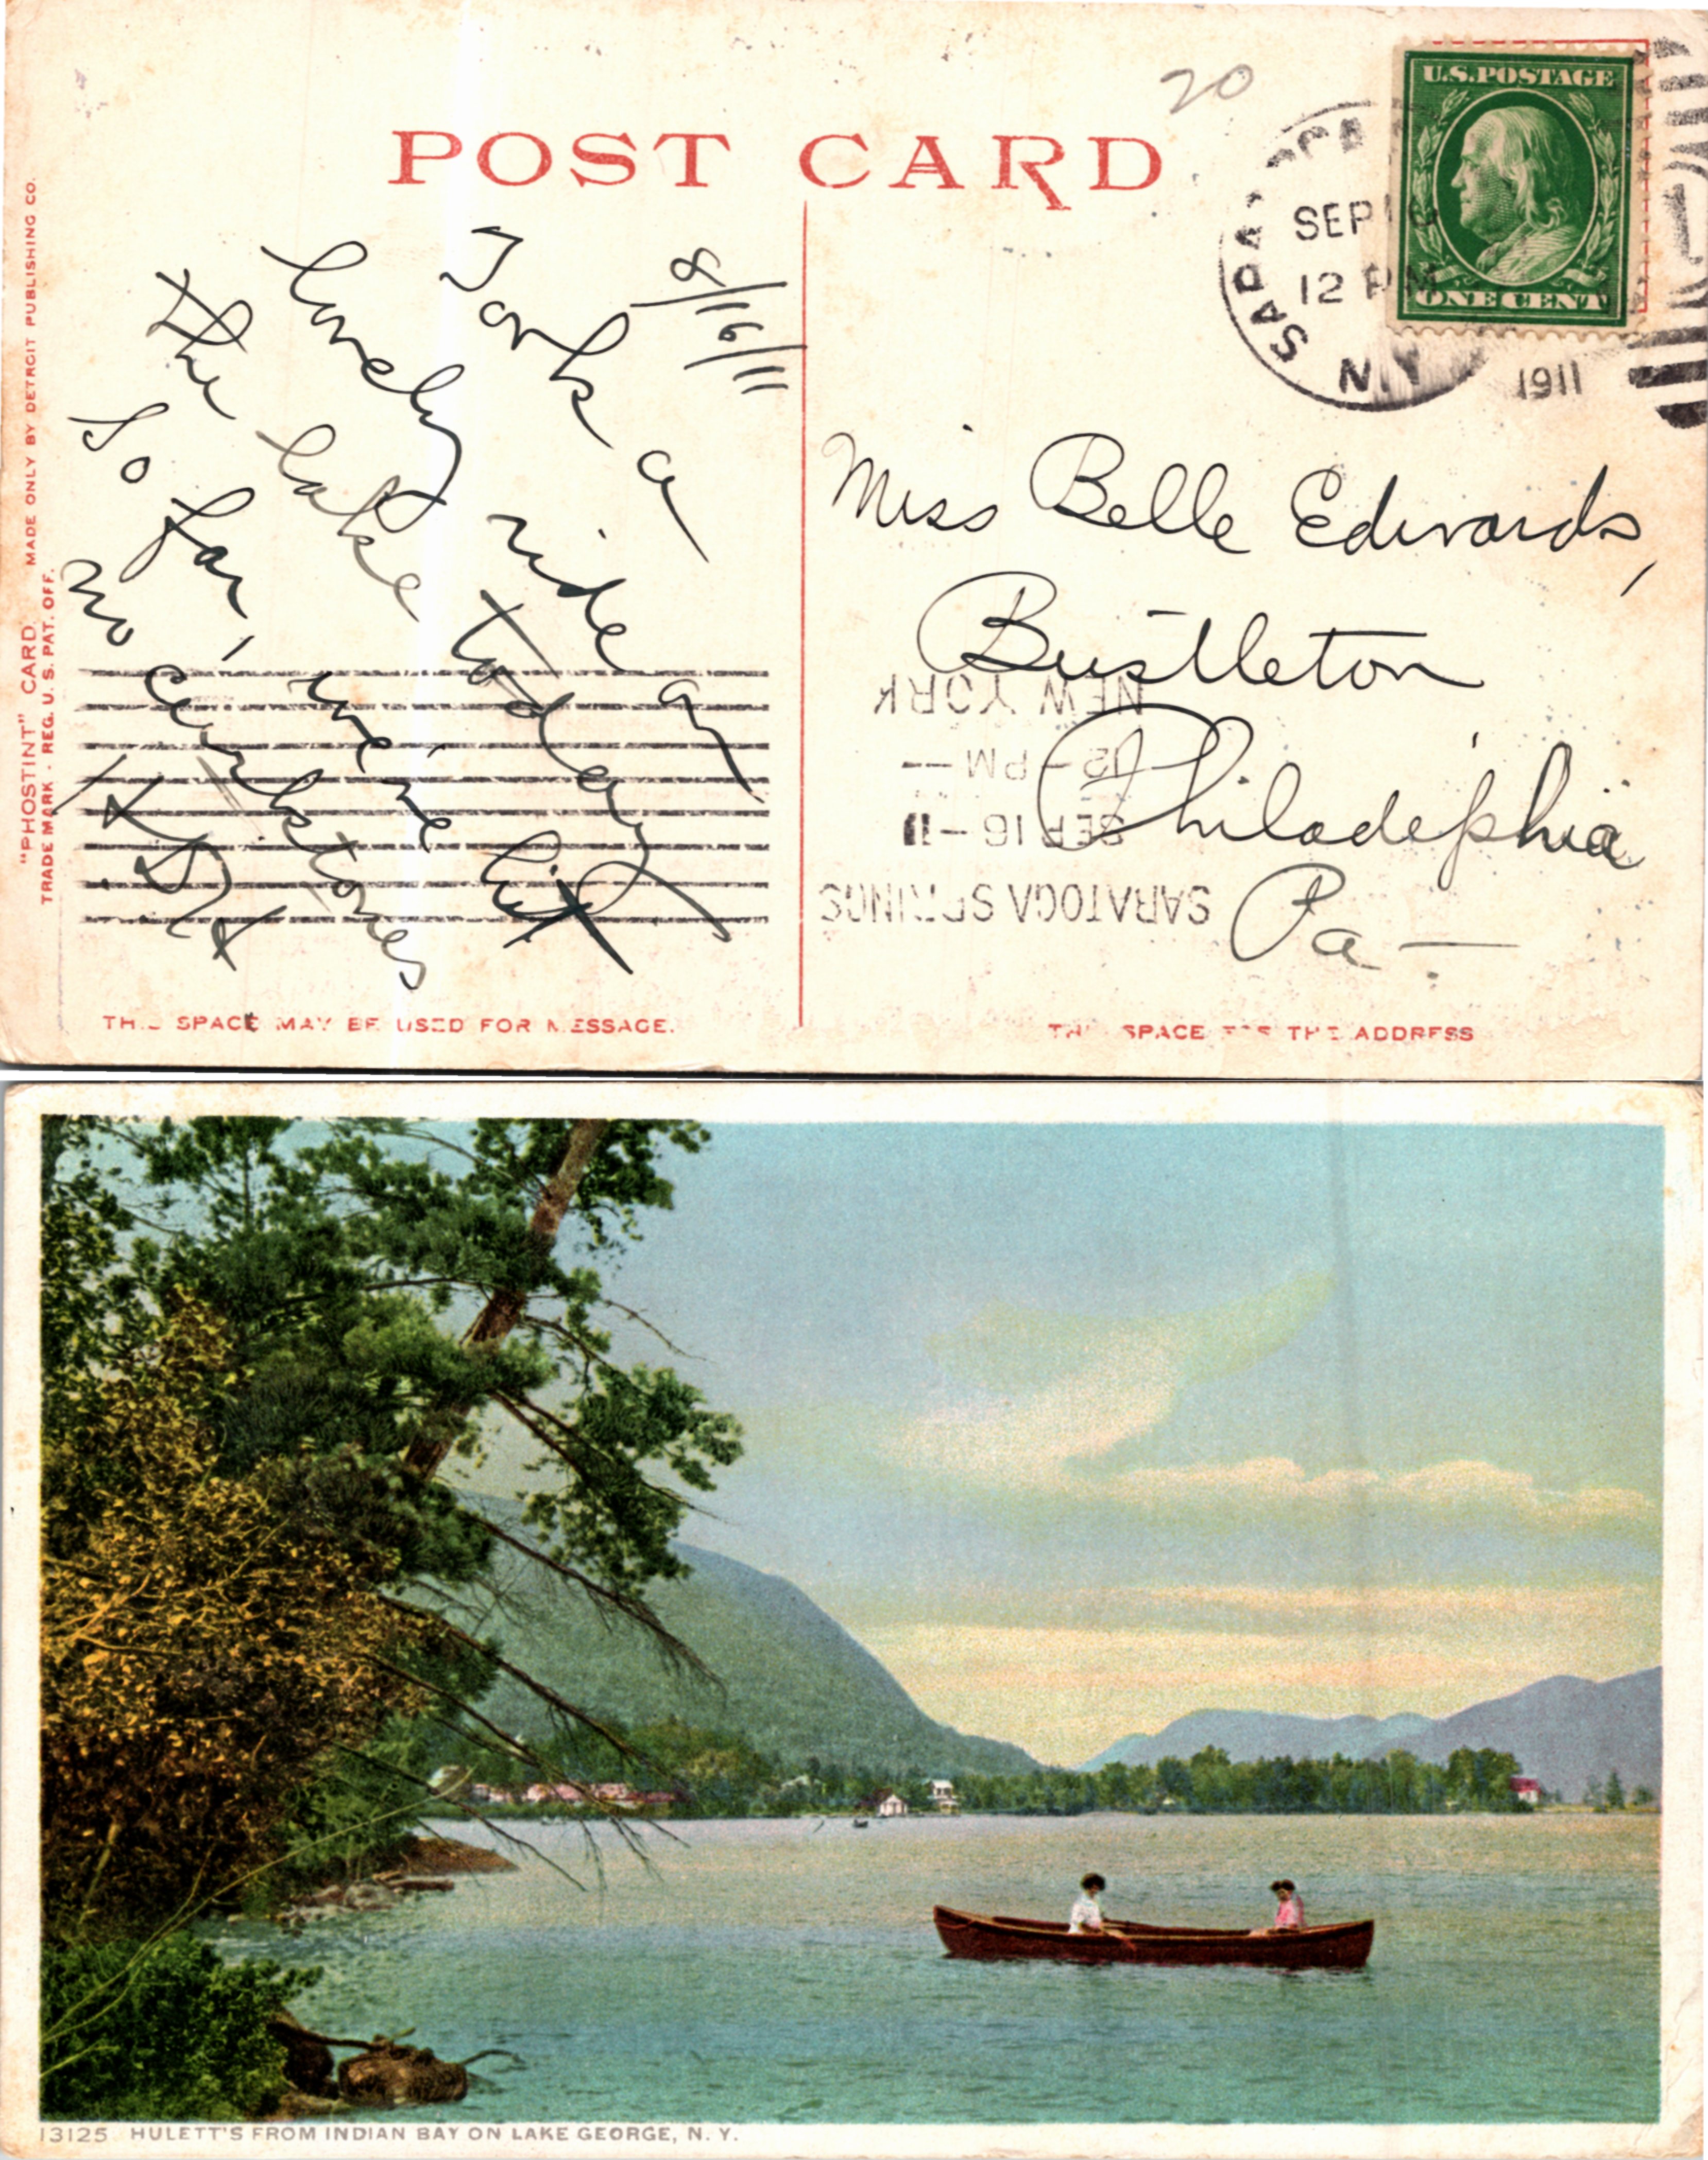 POST CARD
20
U.S. POSTAGE
ONE CENT
SEP 16
12 PM
N.Y.
1911
8/16/11
Took a
lovely ride on
the lake today
So far, we've hit
no curbstones
"PHOSTINT" CARD. MADE ONLY BY DETROIT PUBLISHING CO.
TRADE MARK - REG. U. S. PAT. OFF.
Miss Belle Edwards,
Bustleton
Philadelphia
Pa —
SARATOGA SPRINGS
SEP 16 - 11
12 - PM —
NEW YORK
THIS SPACE MAY BE USED FOR MESSAGE.
THIS SPACE FOR THE ADDRESS
13125 HULETT'S FROM INDIAN BAY ON LAKE GEORGE, N. Y.